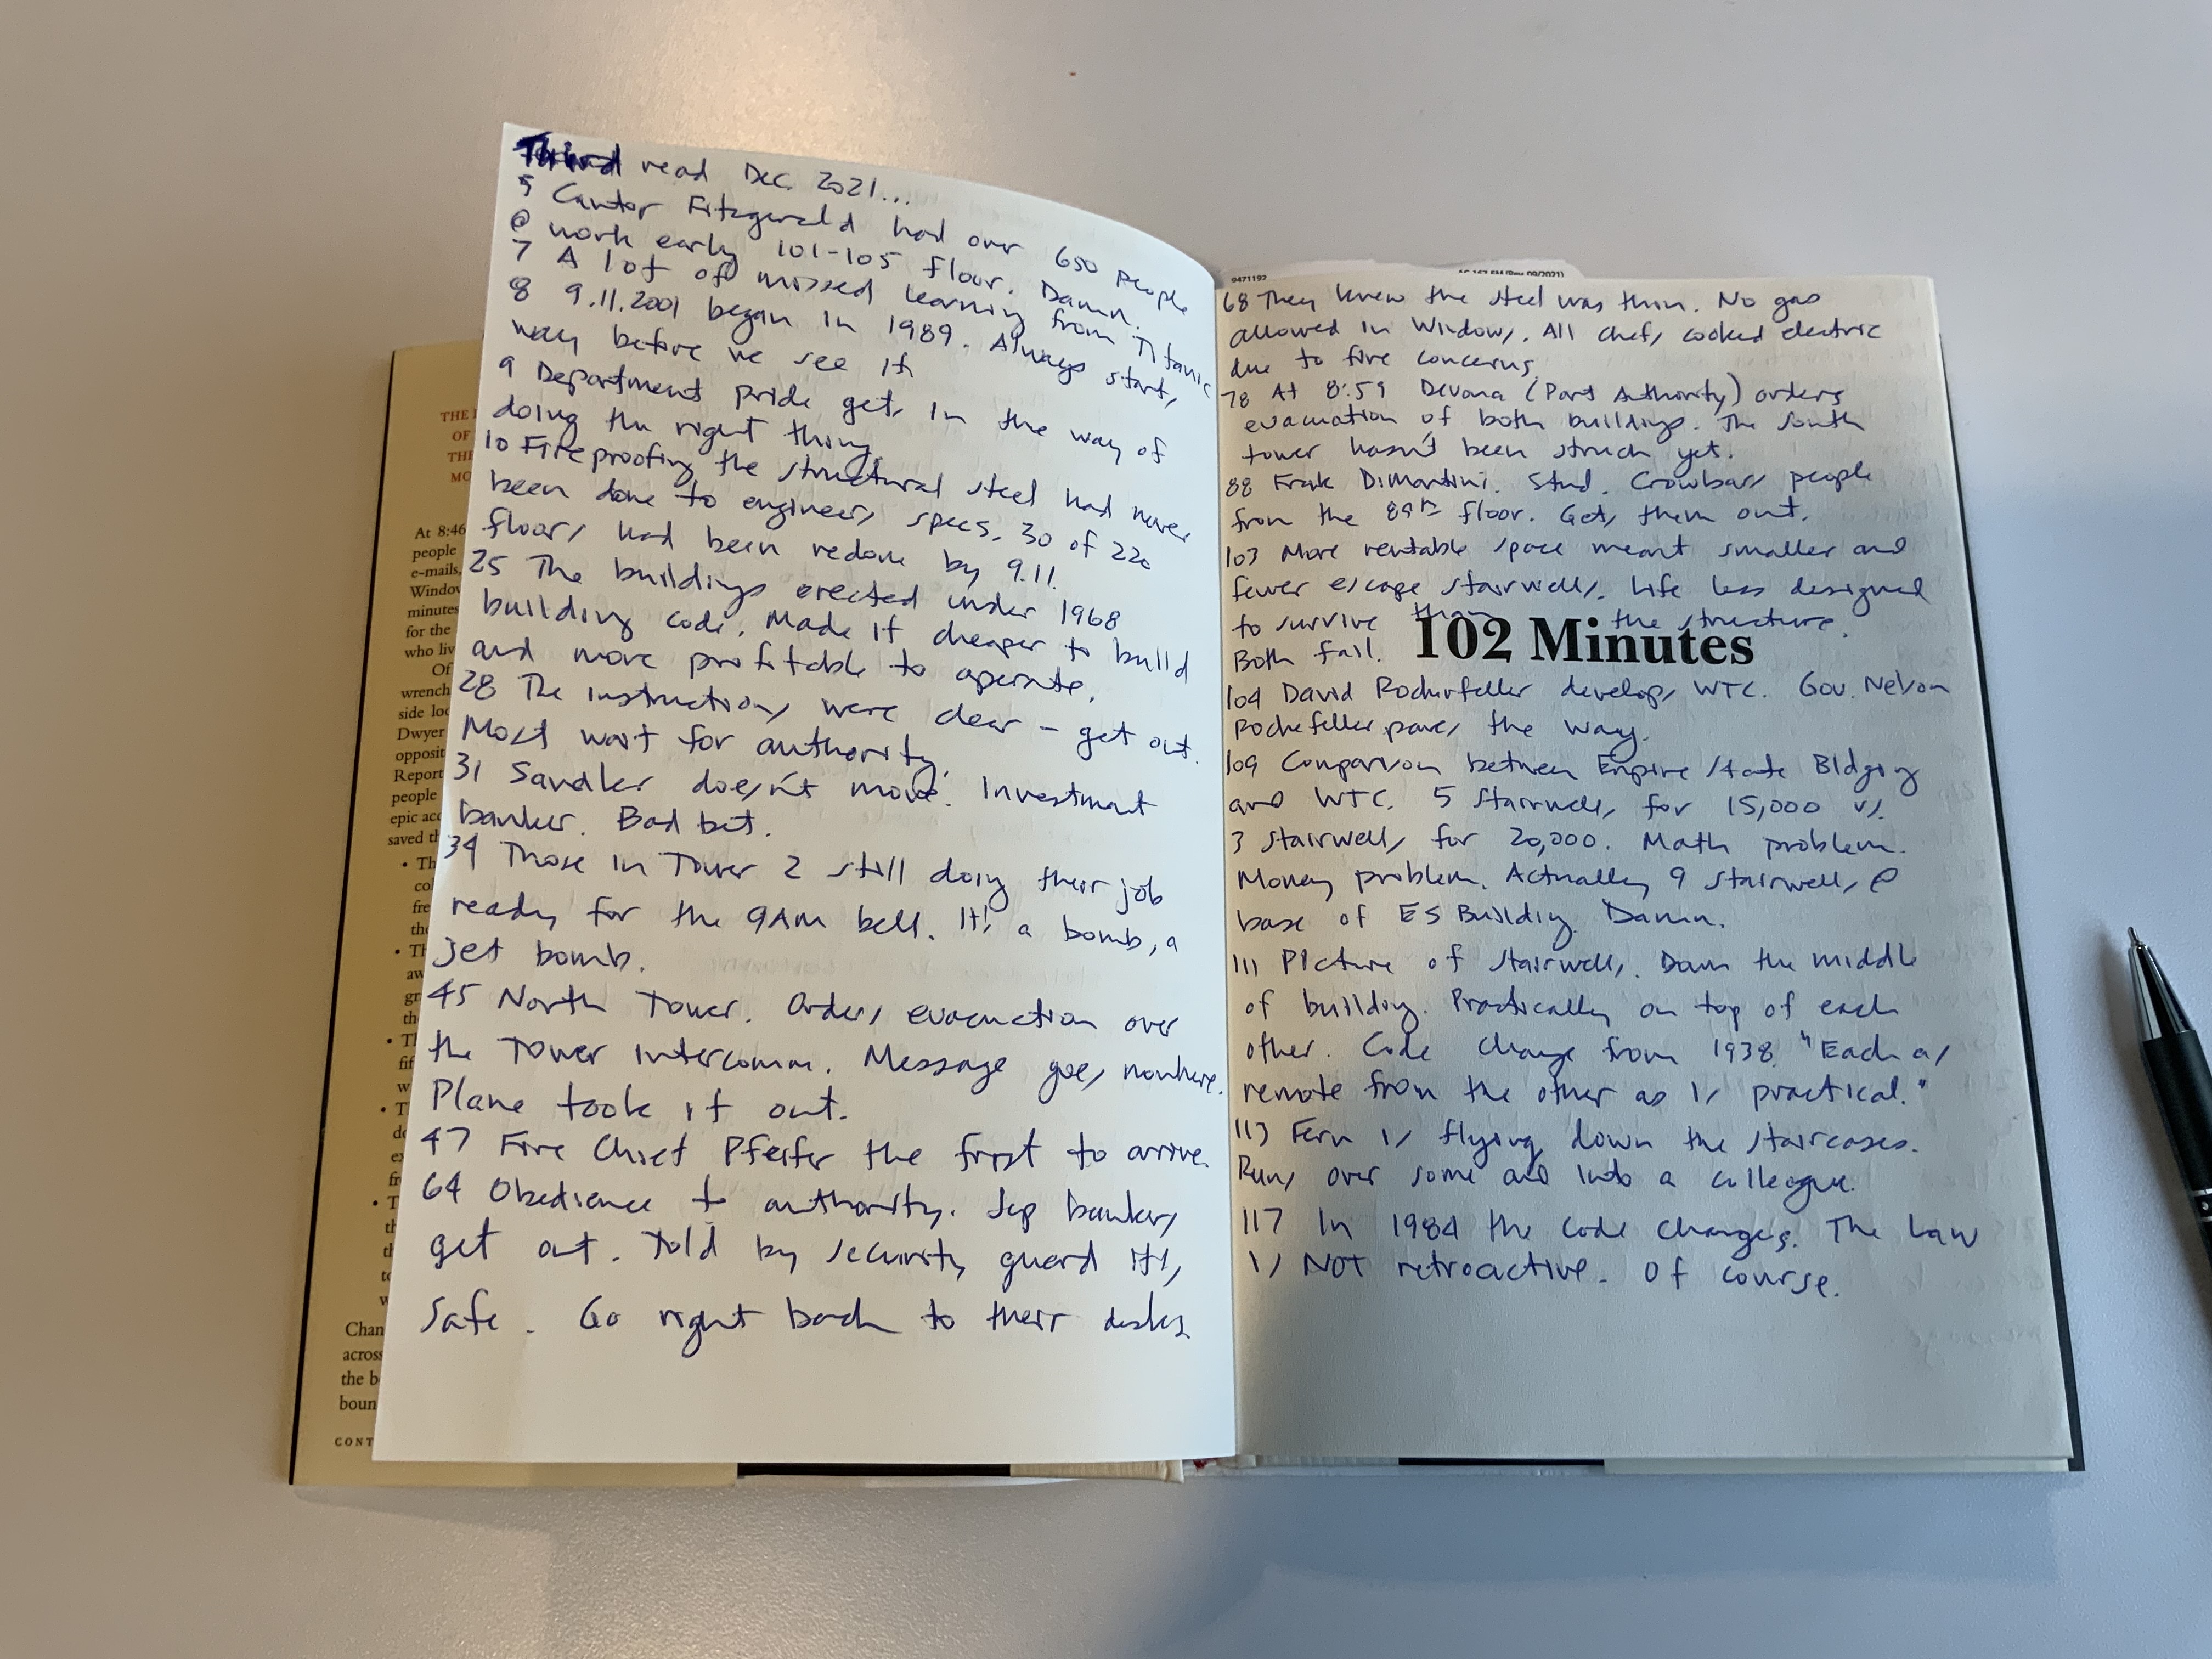 Third read Dec. 2021...
5 Cantor Fitzgerald had over 650 people
@ work early 101-105 floor. Damn.
7 A lot of missed learning from Titanic
8 9.11.2001 began in 1989. Always starts
way before we see it
9 Department pride gets in the way of
doing the right thing.
10 Fireproofing the structural steel had never
been done to engineers specs. 30 of 220
floors had been redone by 9.11.
25 The buildings erected under 1968
building code. Made it cheaper to build
and more profitable to operate.
28 The instructions were clear - get out.
Most wait for authority.
31 Sandler doesn't move. Investment
banker. Bad bet.
34 Those in Tower 2 still doing their job
ready for the 9AM bell. It's a bomb, a
jet bomb.
45 North Tower. Orders evacuation over
the Tower intercomm. Message goes nowhere.
Plane took it out.
47 Fire Chief Pfeifer the first to arrive.
64 Obedience to authority. Jap bankers
get out. Told by security guard it's
safe. Go right back to their desks.
THE
OF
THE
MO
At 8:46
people
e-mails,
Window
minutes
for the
who liv
Of
wrench
side loc
Dwyer
opposit
Report
people
epic acc
saved th
• Th
col
fre
the
• Th
aw
gr
the
• Th
fif
w
• T
de
ex
fr
• T
th
th
to
w
Chan
across
the b
boun
CONT
9471192
68 They knew the steel was thin. No gas
allowed in Windows. All chefs cooked electric
due to fire concerns.
78 At 8:59 Devona (Port Authority) orders
evacuation of both buildings. The South
tower hasn't been struck yet.
88 Frank DiMartini. Stud. Crowbars people
from the 89th floor. Gets them out.
103 More rentable space meant smaller and
fewer escape stairwells. Life less designed
to survive than the structure.
Both fail.
102 Minutes
104 David Rockerfeller develops WTC. Gov. Nelson
Rockefeller paves the way.
109 Comparison between Empire State Bldging
and WTC. 5 stairwells for 15,000 vs.
3 stairwells for 20,000. Math problem.
Money problem. Actually 9 stairwells @
base of ES Building. Damn.
111 Picture of stairwells. Down the middle
of building. Practically on top of each
other. Code change from 1938. "Each as
remote from the other as is practical."
113 Fern is flying down the staircases.
Runs over some and into a colleague.
117 In 1984 the code changes. The law
is NOT retroactive. Of course.